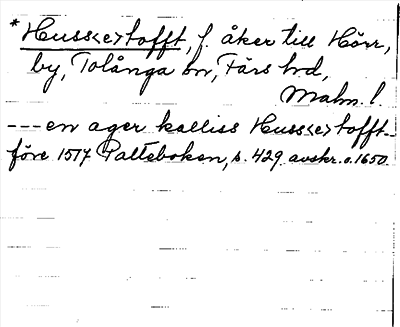 * Huss<e>tofft, f. åker till Hörr,
by, Tolånga sn, Färs hd,
Malm. l.
--- en ager kalliss Huss<e>tofft --
före 1517 Palteboken, s. 429. avskr. o. 1650.